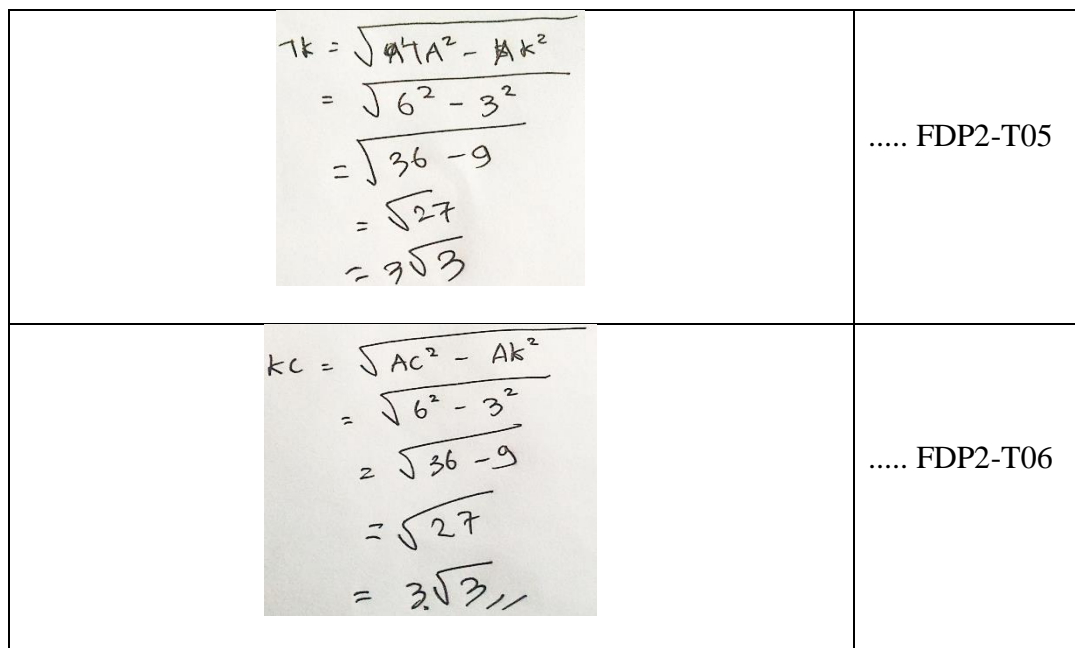 TK = √TA² - AK²
= √6² - 3²
= √36 - 9
= √27
= 3√3
..... FDP2-T05
KC = √AC² - AK²
= √6² - 3²
= √36 - 9
= √27
= 3√3
..... FDP2-T06